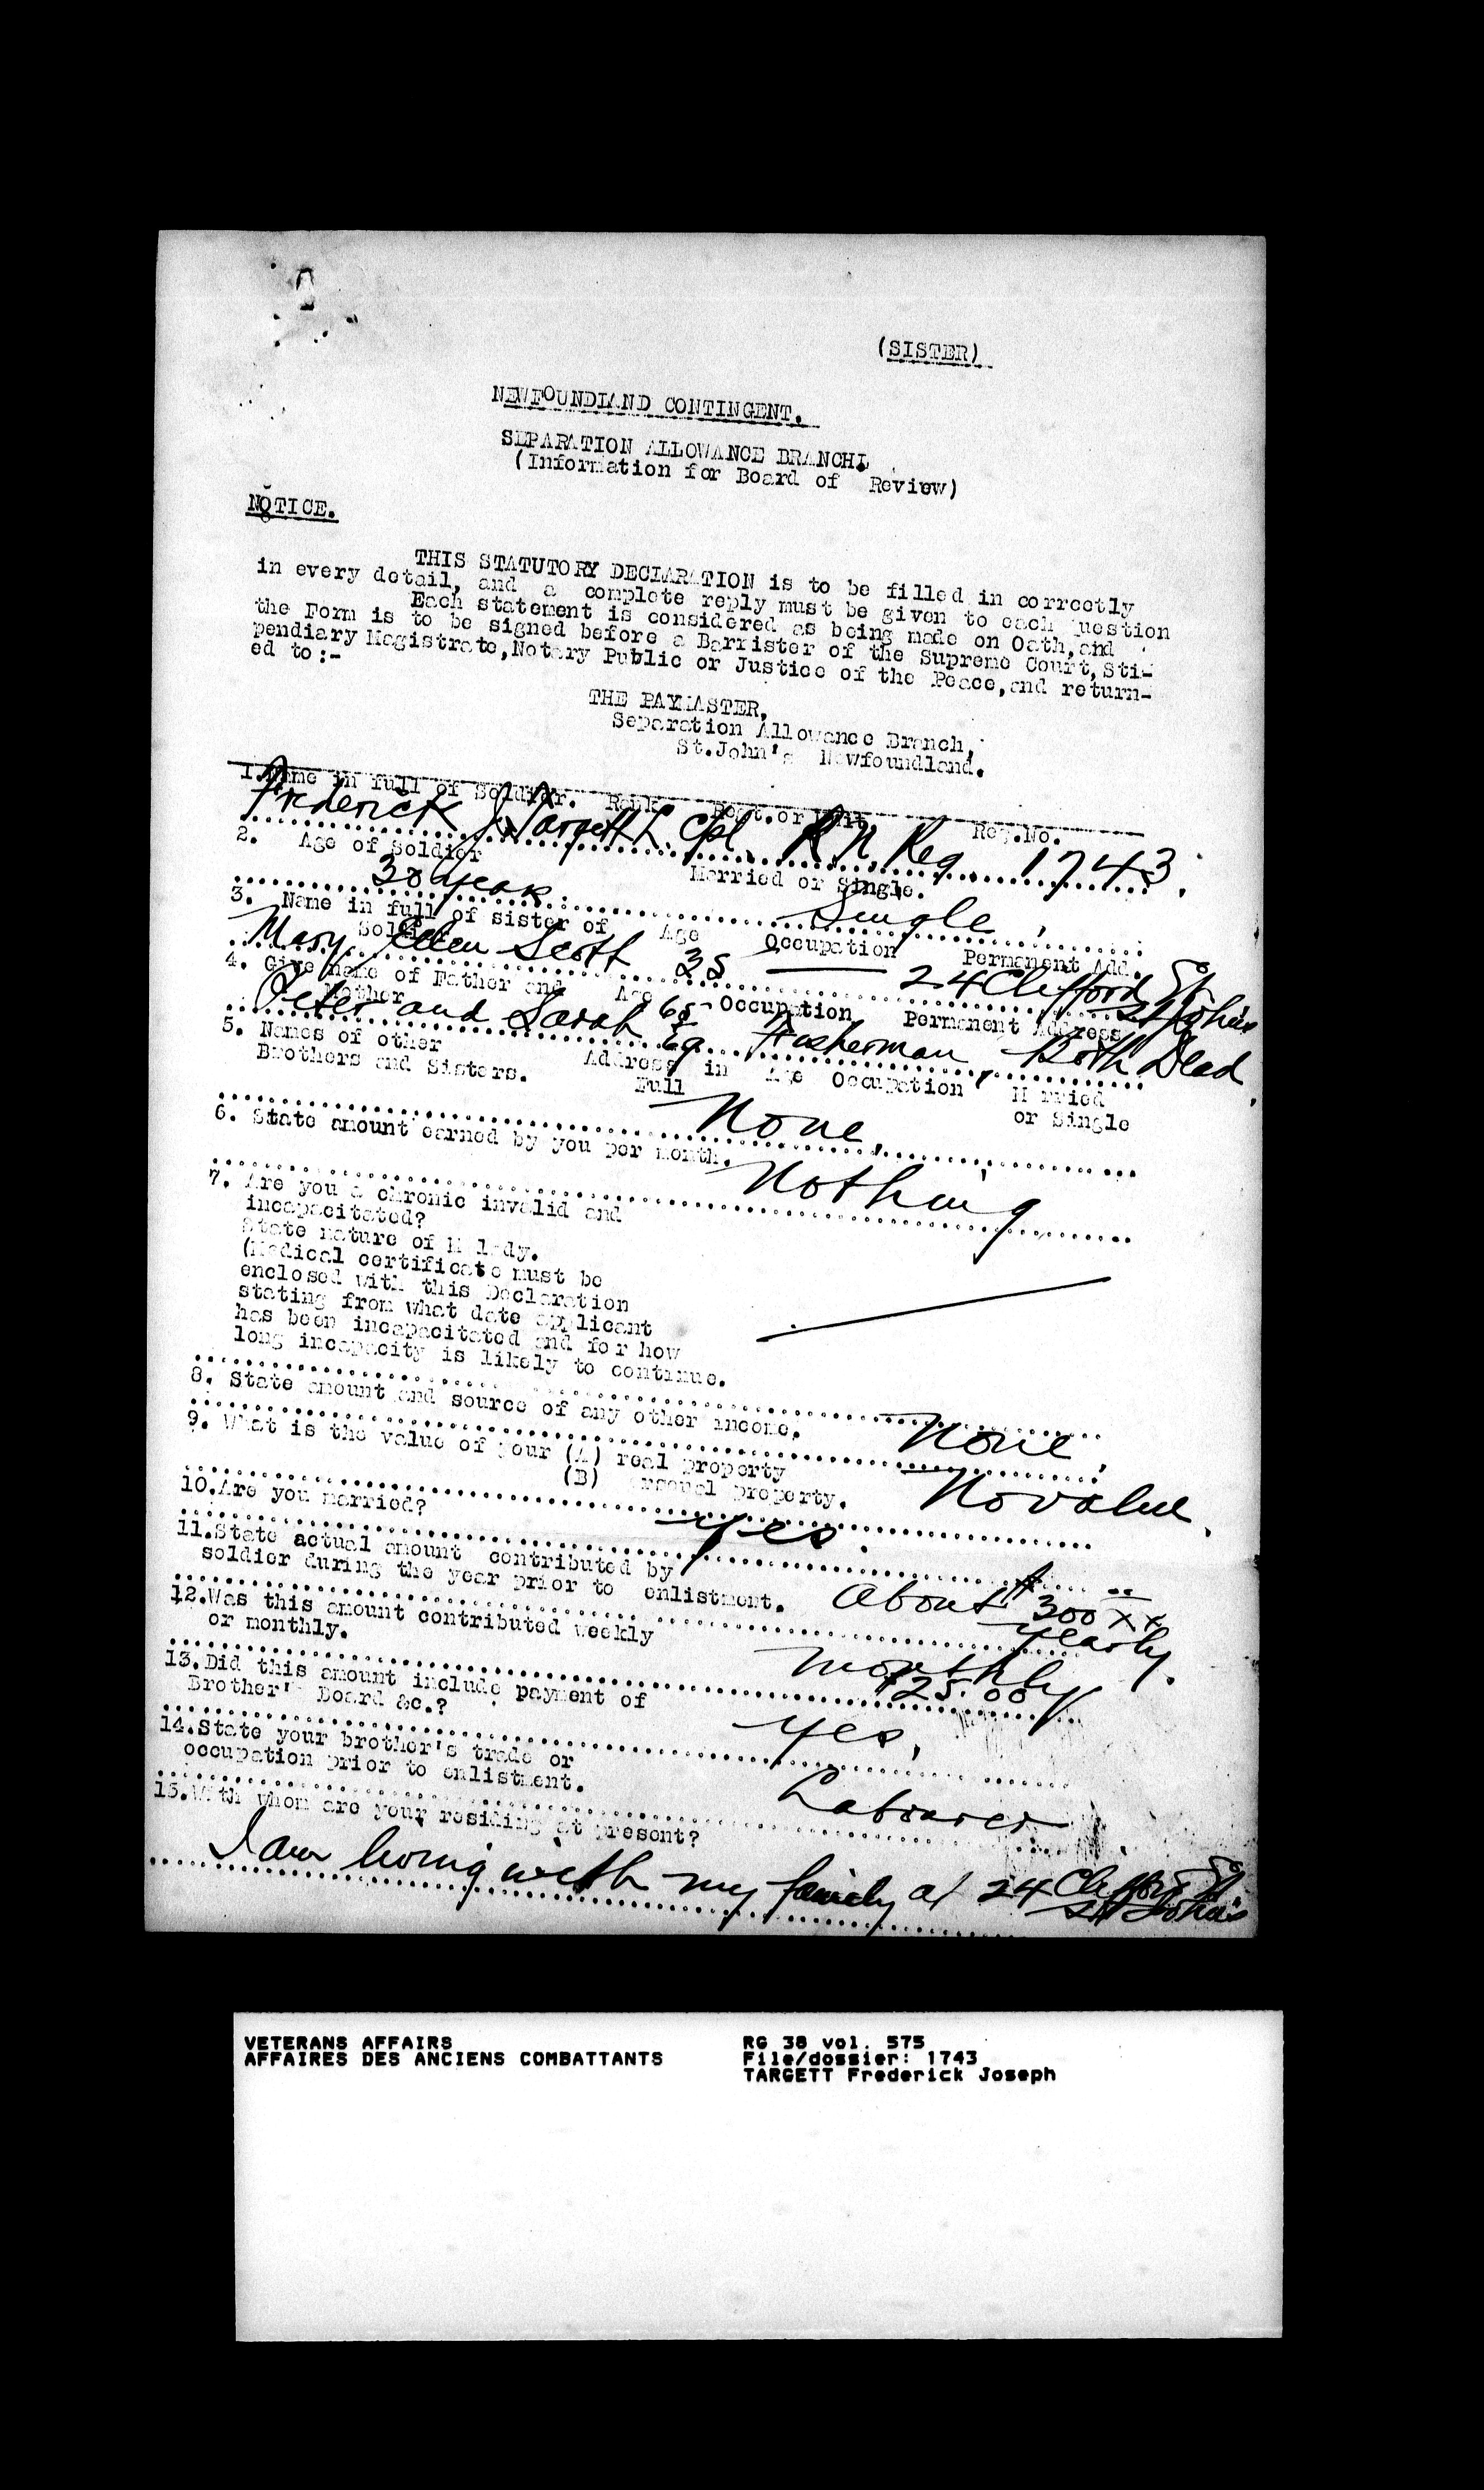 (SISTER)
NEWFOUNDLAND CONTINGENT.
SEPARATION ALLOWANCE BRANCH.
(Information for Board of Review)
NOTICE.
THIS STATUTORY DECLARATION is to be filled in correctly
in every detail, and a complete reply must be given to each question
Each statement is considered as being made on Oath, and
the Form is to be signed before a Barrister of the Supreme Court, Sti-
pendiary Magistrate, Notary Public or Justice of the Peace, and return-
ed to:-
THE PAYMASTER,
Separation Allowance Branch,
St.John's Newfoundland.
1. Name in full of Soldier. Rank Regt. or Unit Reg.No.
Frederick J. Targett L. Cpl. R. N. Reg. 1743.
2. Age of Soldier Married or Single.
38 years. Single.
3. Name in full of sister of Age Occupation Permanent Add.
Soldier
Mary Ellen Scott 35 — 24 Clifford St
St John's
4. Give name of Father and Age Occupation Permanent Address
Mother
Peter and Sarah 65 69 Fisherman, Both Dead.
5. Names of other Address in Age Occupation Married
Brothers and Sisters. Full or Single
None.
6. State amount earned by you per month.
Nothing
7. Are you a chronic invalid and
incapacitated?
State nature of Malady.
(Medical certificate must be
enclosed with this Declaration
stating from what date applicant
has been incapacitated and for how
long incapacity is likely to continue.
8. State amount and source of any other income.
None.
9. What is the value of your (A) real property
(B) personal property.
No value.
10.Are you married?
Yes.
11.State actual amount contributed by
soldier during the year prior to enlistment.
About $300 xx
yearly.
12.Was this amount contributed weekly
or monthly.
monthly
$25.00
13.Did this amount include payment of
Brother's Board &c.?
Yes.
14.State your brother's trade or
occupation prior to enlistment.
Labourer
15.With whom are your residing at present?
I am living with my family at 24 Clifford St
St John's
VETERANS AFFAIRS
AFFAIRES DES ANCIENS COMBATTANTS
RG 38 vol. 575
File/dossier: 1743
TARGETT Frederick Joseph